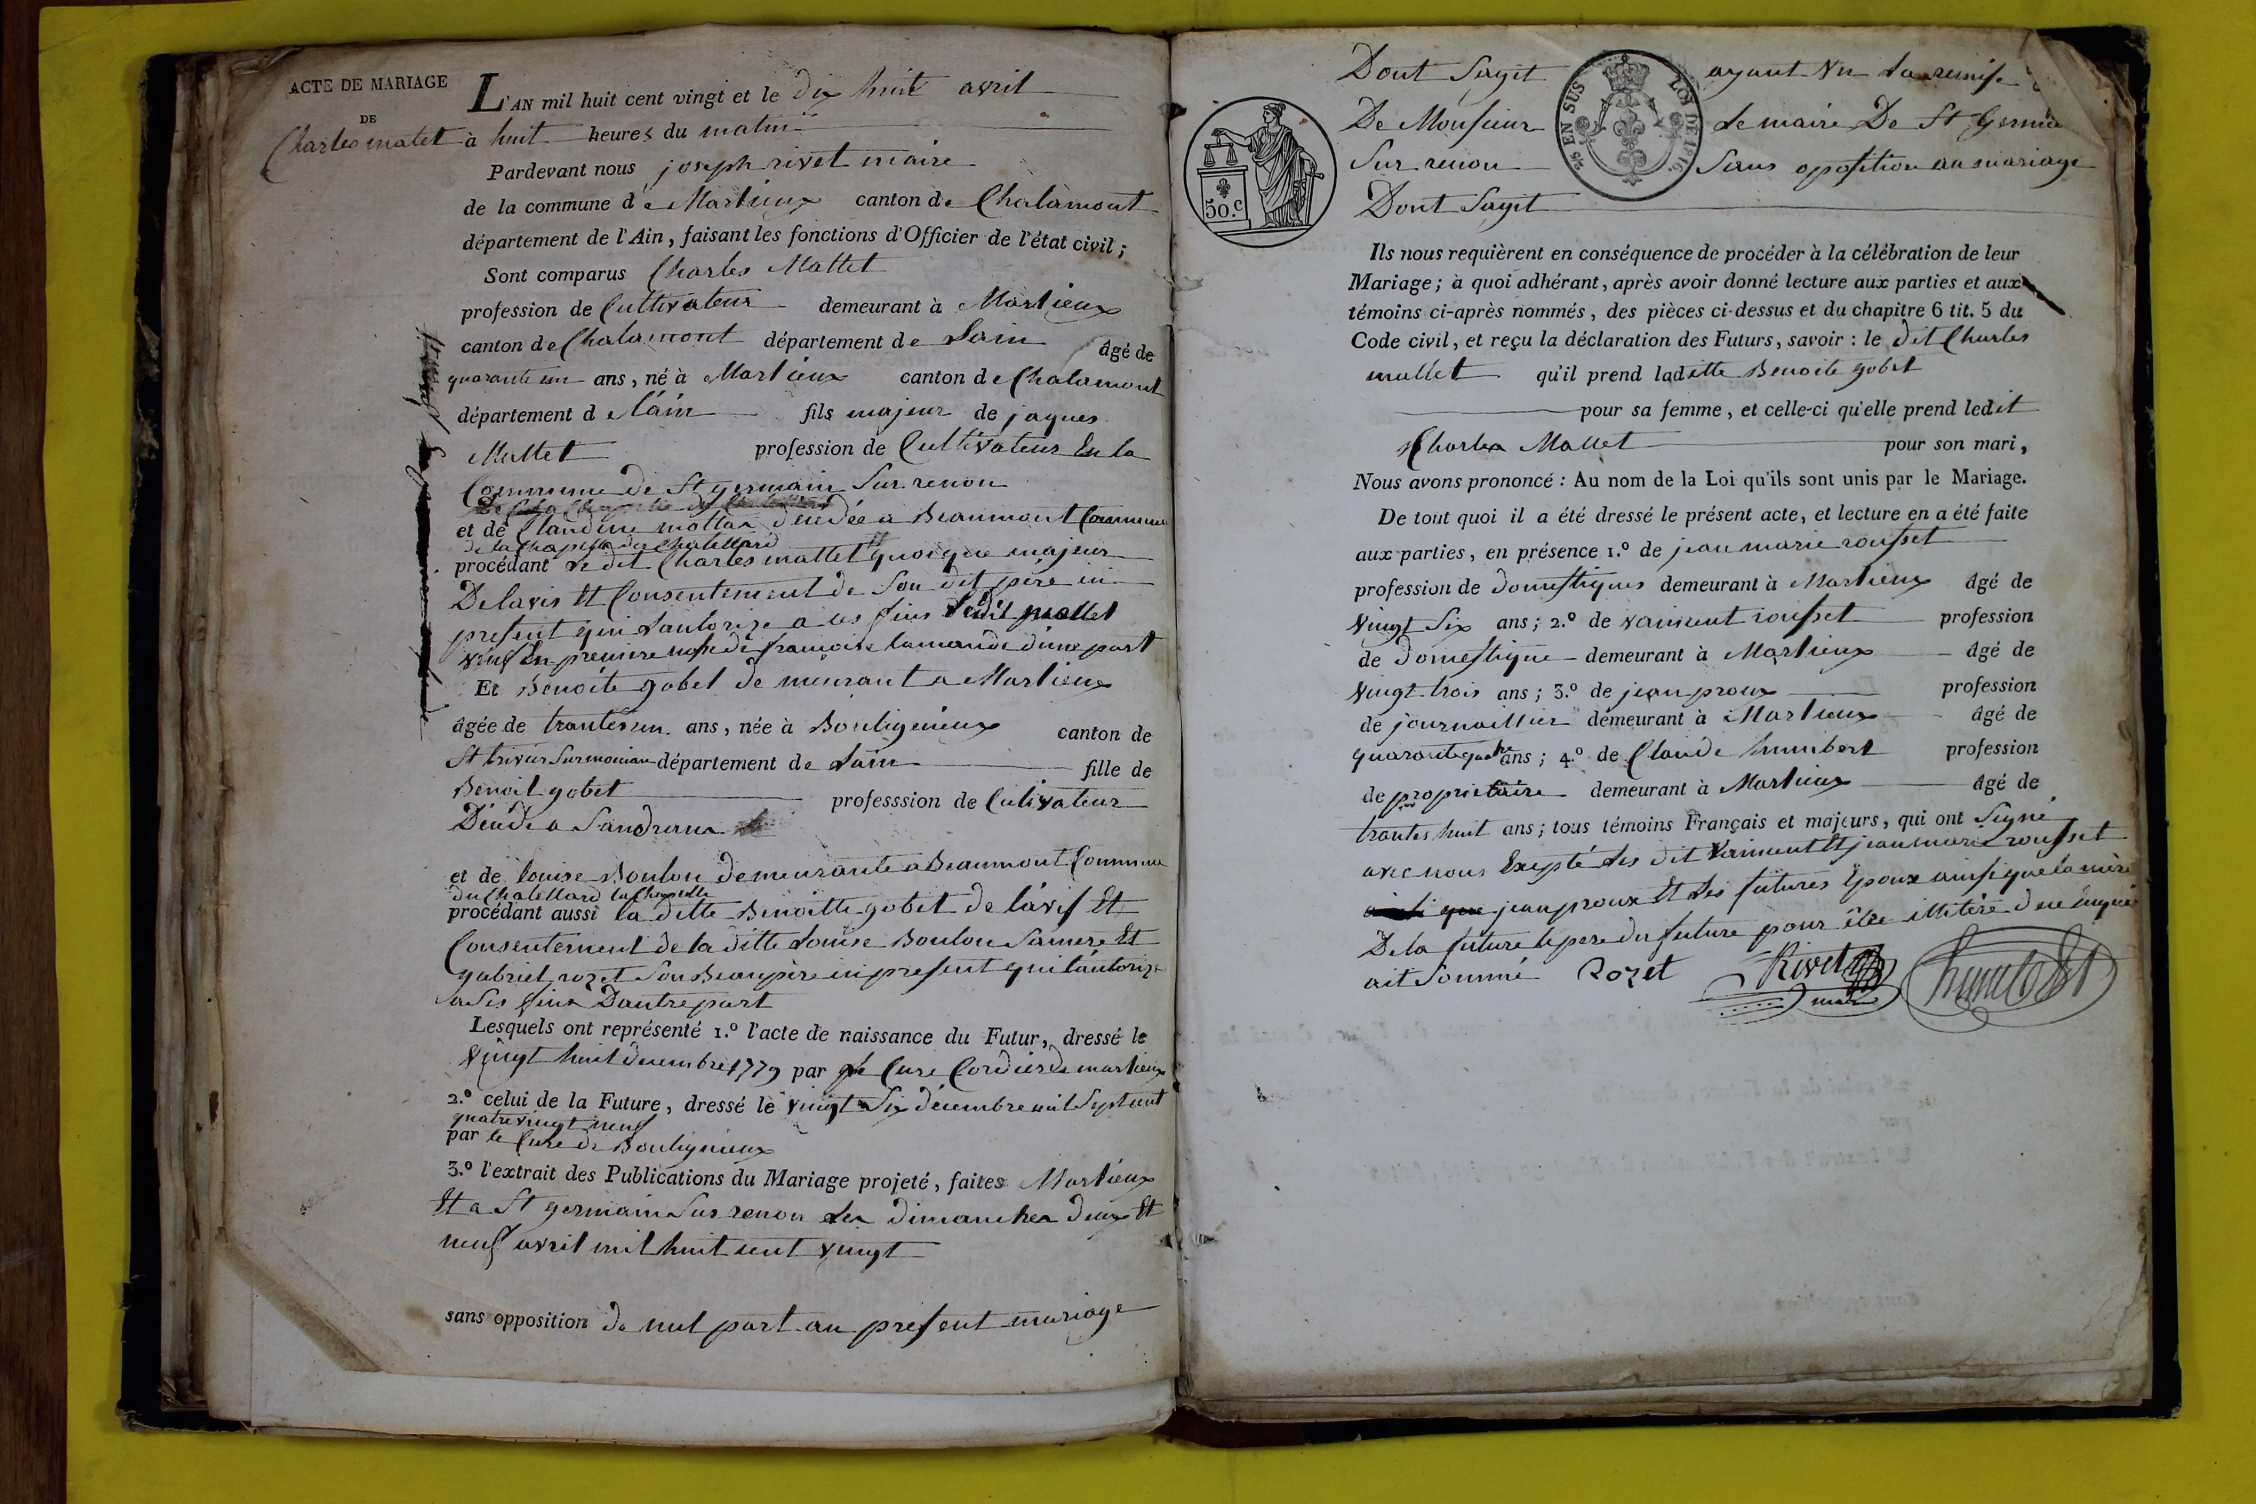 ACTE DE MARIAGE
DE
Charles malet
L'AN mil huit cent vingt et le dix huit avril
à huit heures du matin
Pardevant nous joseph rivet maire
de la commune de Marlieux canton de Chalamont
département de l'Ain, faisant les fonctions d'Officier de l'état civil ;
Sont comparus Charles Mallet
profession de Cultivateur demeurant à Marlieux
canton de Chalamont département de Lain âgé de
quarante un ans, né à Marlieux canton de Chalamont
département de l'ain fils majeur de jaques
Mallet profession de Cultivateur En la
Commune de St germain Sur renon
et de Claudine mottar décédée a Beaumont Commune
de la chapelle du Chatellard
procédant le dit Charles mallet quoique majeur
De lavis Et Consentement de Son dit père ici
present qui Lautorize a ces fins Le dit mallet
veuf En premiere noce de francoise d'une part
Et Benoite gobet demeurant a Marlieux
âgée de trante un ans, née à Bouligneux canton de
St trivier Sur moinian département de Lain fille de
Benoit gobet professsion de Cultivateur
Décédé a Sandrans
et de louise Boulon demeurante a Beaumont Commune
du Chatellard la Chapelle
procédant aussi la ditte Benoitte gobet de l'avis Et
Consentement de la ditte Louise Boulon Samere Et
gabriel rozet Son Beaupère ici present qui l'autorize
a Ses fins Dautre part
Lesquels ont représenté 1.º l'acte de naissance du Futur, dressé le
vingt huit decembre 1779 par le Cure Cordier de marlieux
2.º celui de la Future, dressé le vingt Six décembre mil Sept cent
quatre vingt neuf
par le Cure de Bouligneux
3.º l'extrait des Publications du Mariage projeté, faites Marlieux
Et a St germain Sur renon les dimanches deux Et
neuf avril mil huit cent vingt
sans opposition de nul part au present mariage
Dont Sagit ayant vu la remise
De Monsieur le maire De St Germain
Sur renon Sans oposition au mariage
Dont Sagit
EN SUS LOI DE 1816
50.c
Ils nous requièrent en conséquence de procéder à la célébration de leur
Mariage ; à quoi adhérant, après avoir donné lecture aux parties et aux
témoins ci-après nommés, des pièces ci-dessus et du chapitre 6 tit. 5 du
Code civil, et reçu la déclaration des Futurs, savoir : le dit Charles
mallet qu'il prend laditte Benoite gobet
pour sa femme, et celle-ci qu'elle prend ledit
Charles Mallet pour son mari,
Nous avons prononcé : Au nom de la Loi qu'ils sont unis par le Mariage.
De tout quoi il a été dressé le présent acte, et lecture en a été faite
aux parties, en présence 1.º de jean marie rousset
profession de domestiques demeurant à Marlieux âgé de
vingt Six ans ; 2.º de vaincent rousset profession
de domestique demeurant à Marlieux âgé de
vingt trois ans ; 3.º de jean proux profession
de journaillier demeurant à Marlieux âgé de
quarante quatre ans ; 4.º de Claude humbert profession
de proprietaire demeurant à Marlieux âgé de
trantes huit ans ; tous témoins Français et majeurs, qui ont Signé
avec nous Exepté les dit vaincent Et jean marie rousset
jean proux Et Les futures Epoux ainsi que la mère
De la future le pere du future pour être illitéré de ce enquis
ait Sommé Rozet Rivet humbert
maire